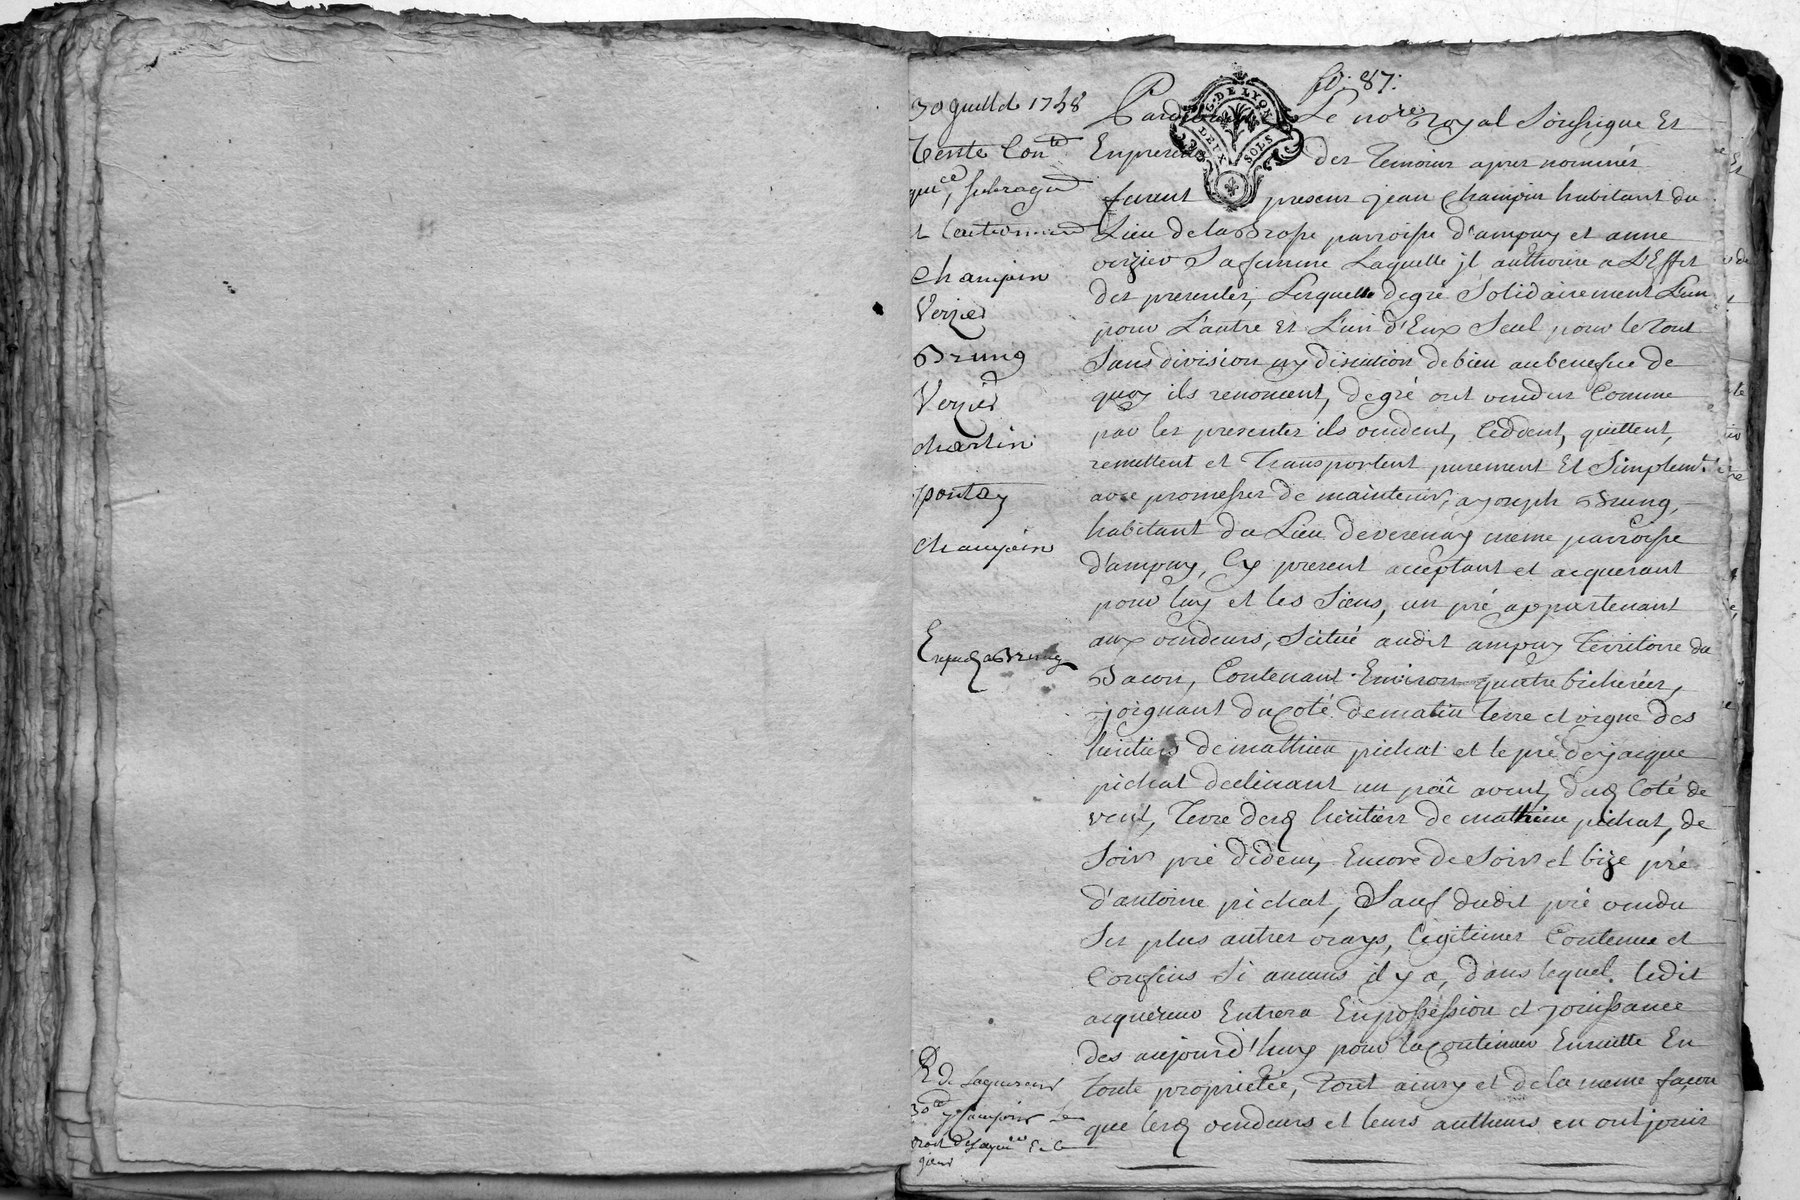 fo: 87:
30 Juillet 1758
Vente Con.te
quit.ce, subrog.on
& Cautionnem.t
Champin
Verzier
Brung
Verzier
Martin
pontay
Champin
Expedié a Brung
Pardevant Le no.re Royal Soussigné Et
En presence des Temoins apres nommés
furent presens jean Champin habitant du
Lieu de la Brosse parroisse d'ampuy et anne
verzier Sa femme Laquelle jl authorise a L'Effet
des presentes, Lesquels de gré Solidairement L'un
pour L'autre Et L'un d'Eux Seul pour le tout
Sans division ny discution de bien au benefice de
quoy ils renoncent, de gré ont vendus Comme
par les presentes ils vendent, Ceddent, quittent,
remettent et Transportent purement Et Simplem.t
avec promesses de maintenir, a joseph Brung,
habitant du Lieu de verenay meme parroisse
d'ampuy, Cy present acceptant et acquerant
pour luy et les Siens, un pré appartenant
aux vendeurs, Scitué audit ampuy Territoire du
Bacon, Contenant Environ quatre bicherées,
joignant du coté de matin terre et vigne des
heritiers de mathieu pichat et le pré de jacque
pichat declinant un peu a vent, dud. Coté de
vent, Terre desd. heritiers de mathieu pichat, de
Soir pré dideny, Encore de Soir et bize pré
d'antoine pichat, Sauf dudit pré vendu
Ses plus autres vrays, legitimes Contenus et
Confins Si aucuns il y a, dans lequel ledit
acquereur Entrera En possession et jouissance
des aujourd'huy pour la Continuer Ensuitte En
toute proprietée, tout ainsy et de la meme façon
que lesd. vendeurs et leurs autheurs en ont jouis
R de Lacquereur
G. DE LYON
DEUX SOLS